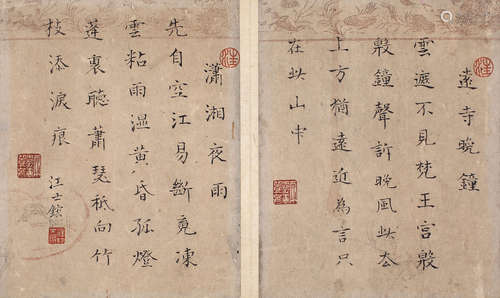 遠寺晩鐘
雲遮不見梵王宮殷
殷鐘聲訴晩風此去
上方猶遠近為言只
在此山中
瀟湘夜雨
先自空江易斷竟凍
雲粘雨濕黃昏孤燈
蓬裏聽蕭瑟祗向竹
枝添淚痕
江士鋐